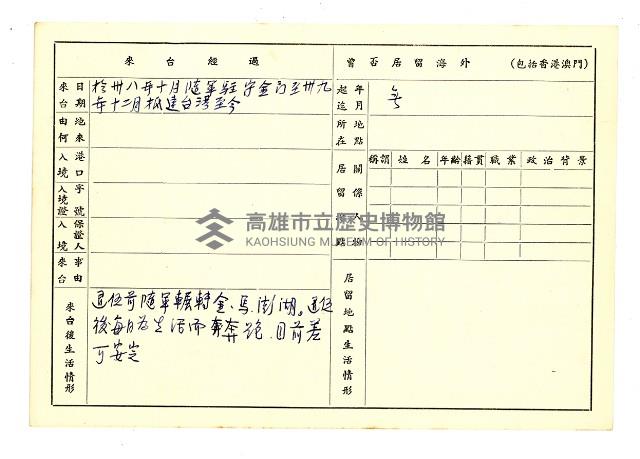 來台經過
來台日期
於卅八年十月隨軍駐守金門至卅九
年十二月抵達台灣至今
由何地來
入境港口
入境證字號
入境保證人
來台事由
來台後生活情形
退伍前隨軍輾轉金、馬、澎湖。退伍
後每日為生活而奔奔跑、目前差
可安定
曾否居留海外 (包括香港澳門)
起迄年月
無
所在地點
居留地點
關係人物
稱謂 姓名 年齡 籍貫 職業 政治背景
居留地點生活情形
高雄市立歷史博物館
KAOHSIUNG MUSEUM OF HISTORY